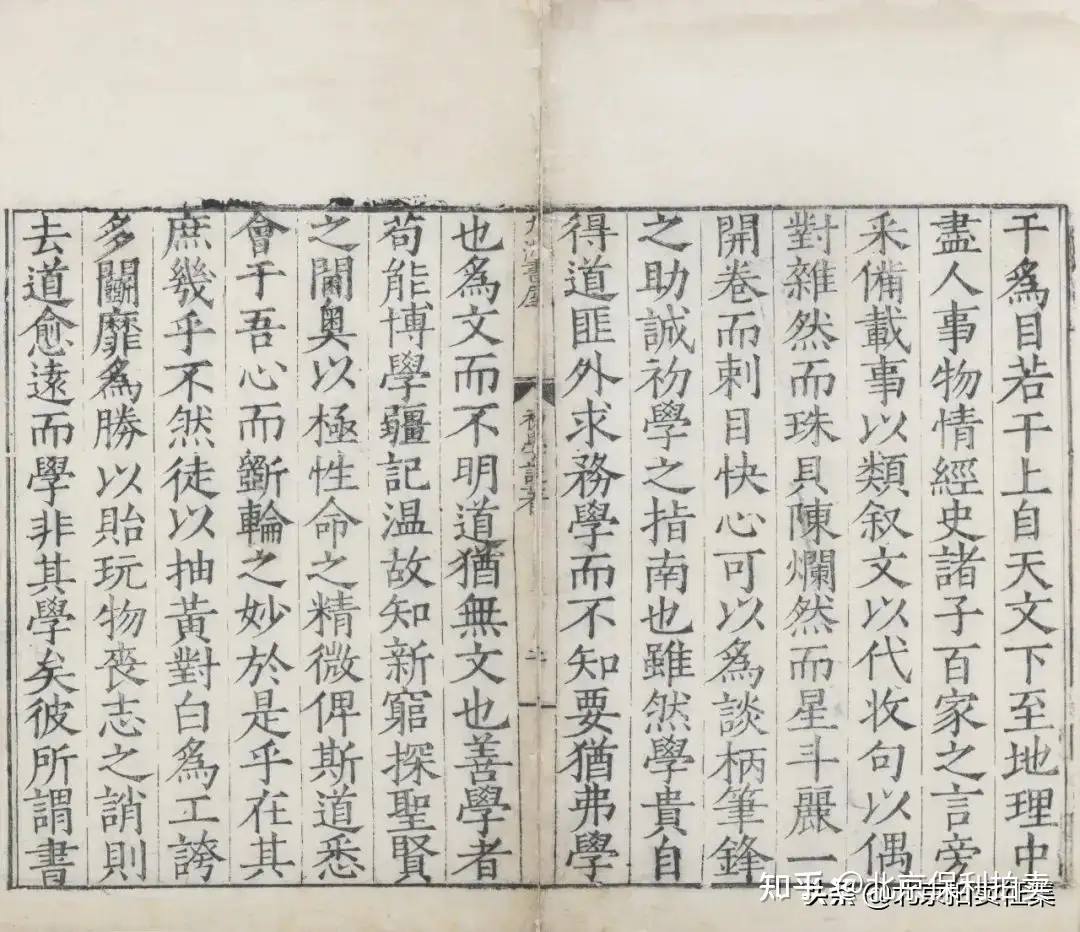 干爲目若干上自天文下至地理中
盡人事物情經史諸子百家之言旁
采備載事以類叙文以代收句以偶
對雜然而珠貝陳爛然而星斗麗一
開卷而刺目快心可以爲談柄筆鋒
之助誠初學之指南也雖然學貴自
得道匪外求務學而不知要猶弗學
書屋
初學記序
也爲文而不明道猶無文也善學者
苟能博學疆記温故知新窮探聖賢
之閫奥以極性命之精微俾斯道悉
會于吾心而斵輪之妙於是乎在其
庶幾乎不然徒以抽黄對白爲工誇
多鬭靡爲勝以貽玩物喪志之誚則
去道愈遠而學非其學矣彼所謂書
知乎 @北京保利拍卖
头条